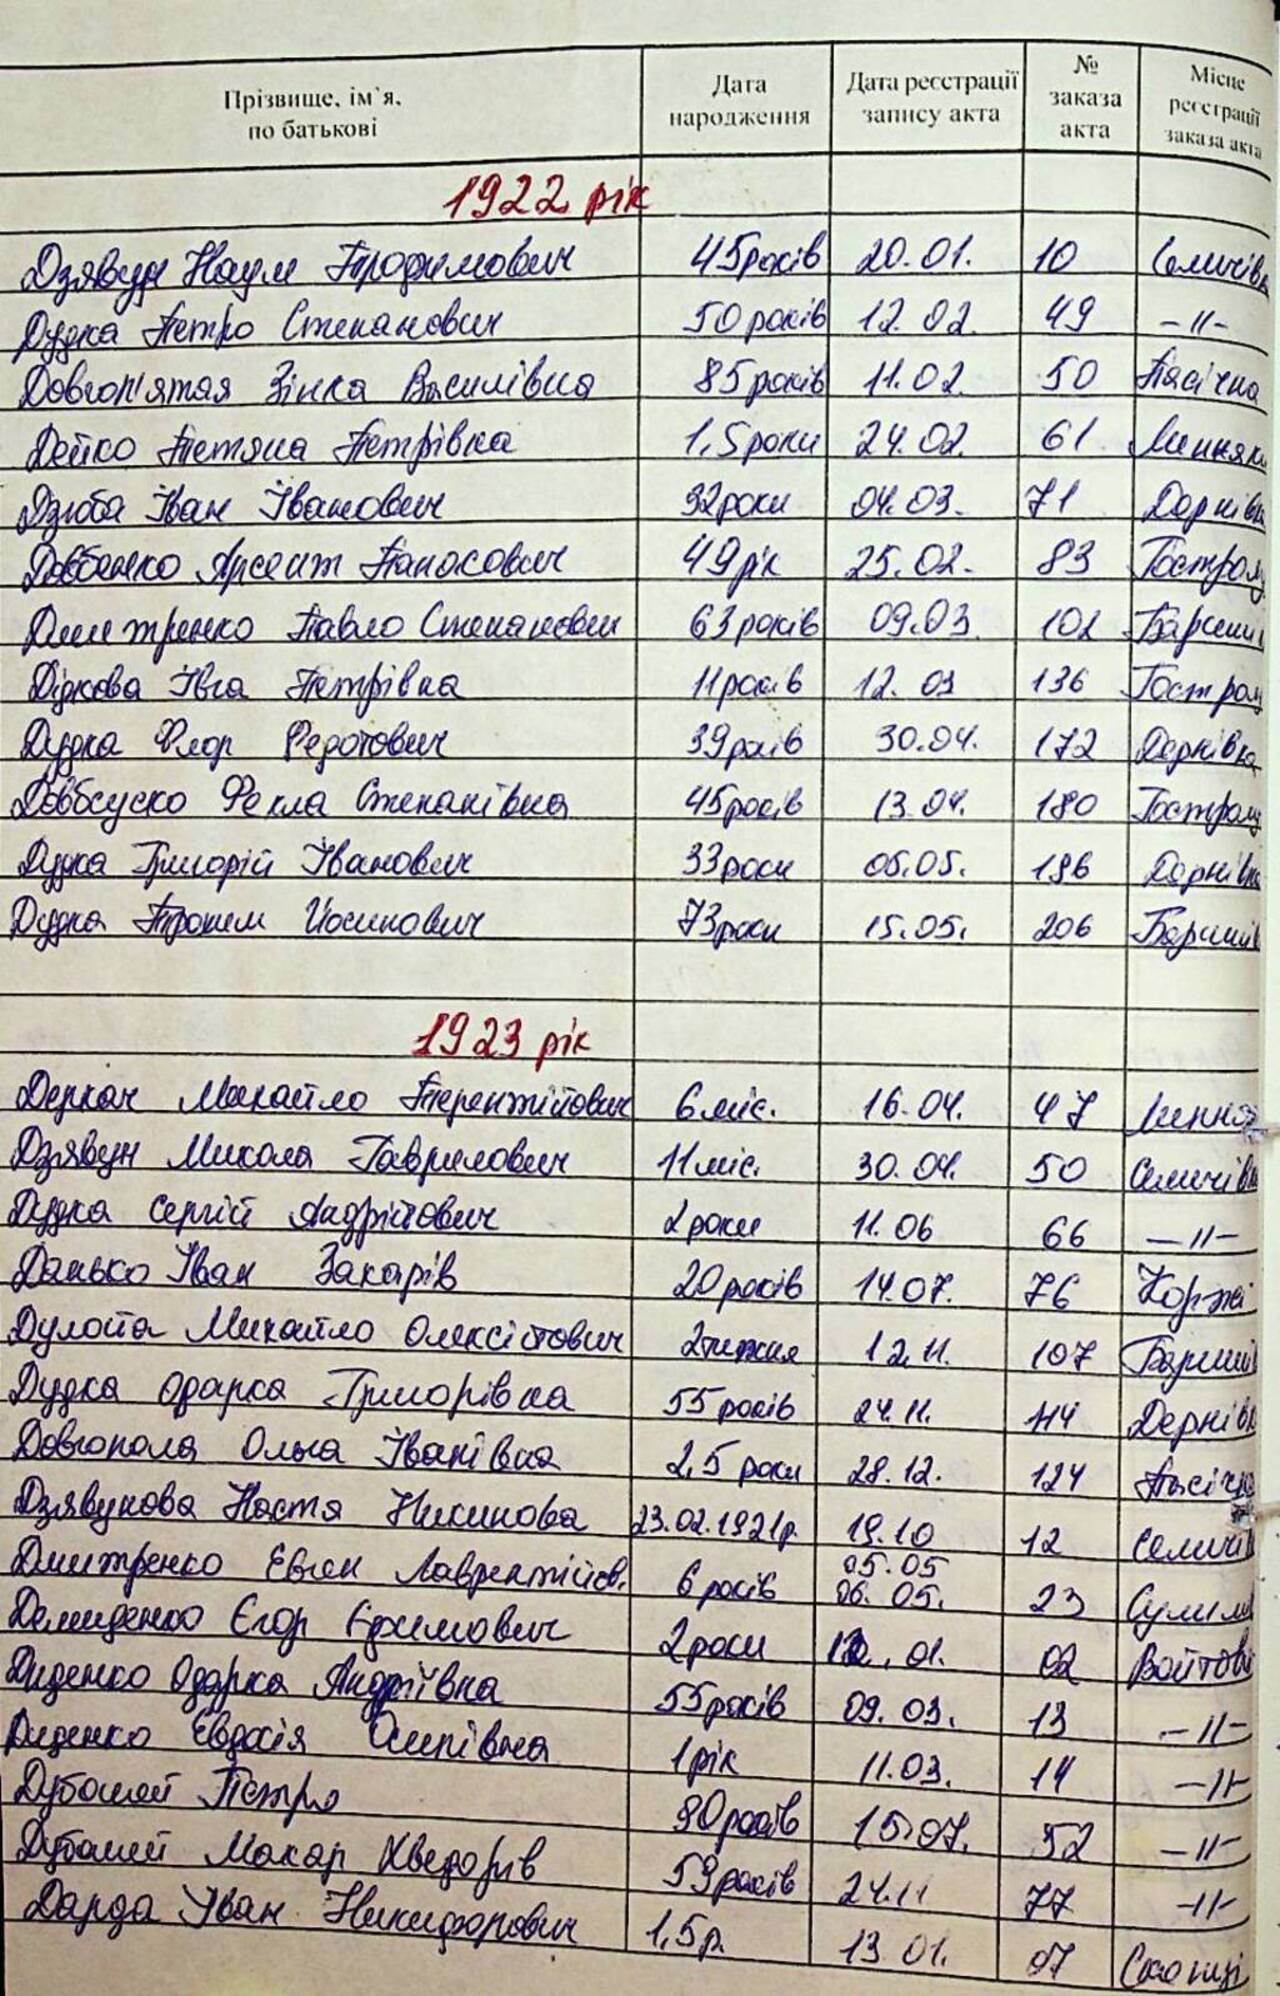 Прізвище, ім`я, по батькові
Дата народження
Дата реєстрації запису акта
№ заказа акта
Місце реєстрації заказа акта
1922 рік
Дзявун Наум Трофимович 45років 20.01. 10 Семичівк
Дудка Петро Степанович 50 років 12.02. 49 -"-
Довгоп'ятая Зінка Василівна 85років 11.02. 50 Пасічна
Дейко Тетяна Петрівна 1,5роки 24.02. 61 Линняки
Дзюба Іван Іванович 32роки 04.03. 71 Дернівка
Довбенко Арсентій Панасович 49рік 25.02. 83 Гостролу
Дмитренко Павло Степанович 63років 09.03. 101 Баришів
Дідкова Івга Петрівна 11років 12.03 136 Гострол
Дудка Флор Федотович 39років 30.04. 172 Дернівка
Фекла Степанівна 45років 13.04. 180 Гостролу
Дудка Григорій Іванович 33роки 05.05. 196 Дернівка
Дудка Трохим Йосипович 73роки 15.05. 206 Баришів
1923 рік
Деркач Михайло Терентійович 6 міс. 16.04. 47 Линня
Дзявун Микола Гаврилович 11міс. 30.04. 50 Семичівк
Дудка Сергій Андрійович 2роки 11.06 66 -"-
Данько Іван Захарів 20років 14.07. 76 Коржі
Дулота Михайло Олексійович 2тижня 12.11. 107 Бариші
Дудка Одарка Григорівна 55років 24.11. 114 Дернівк
Довгопола Ольга Іванівна 2,5 роки 28.12. 124 Пасічна
Дзявунова Настя Никинова 23.02.1921р. 19.10 12 Семичів
Дмитренко Евген Лаврентійєв. 6років 05.05 06.05. 23 Сулим
Демиденко Єгор Єфимович 2роки .01. 02 Войтові
Диденко Одарка Андріївна 55років 09.03. 13 -"-
Диденко Євдокія Осипівна 1рік 11.03. 14 -"-
Дубошей Петро 90років 15.07. 52 -"-
Дубошей Макар Хведорів 59років 24.11 77 -"-
Дарда Іван Никифорович 1,5р. 13.01. 07 Скопці